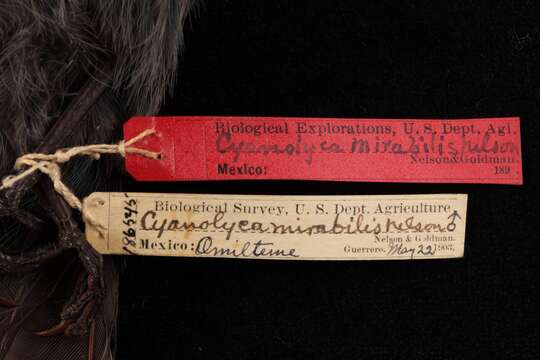 Biological Explorations, U. S. Dept. Agl.
Cyanolyca mirabilis Nelson
Nelson & Goldman.
Mexico: 189
186545
Biological Survey, U. S. Dept. Agriculture
Cyanolyca mirabilis Nelson ♂
Nelson & Goldman.
Mexico: Omilteme Guerrero. May 22 1903.